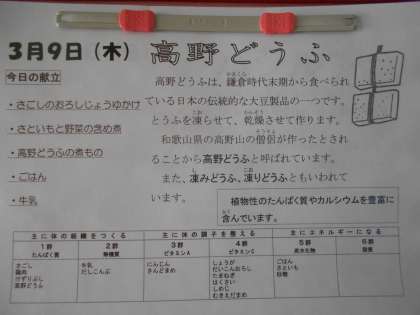 3月9日（木） 高野どうふ
今日の献立
・さごしのおろしじょうゆかけ
・さといもと野菜の含め煮
・高野どうふの煮もの
・ごはん
・牛乳
高野どうふは、鎌倉時代末期から食べられ
ている日本の伝統的な大豆製品の一つです。
とうふを凍らせて、乾燥させて作ります。
和歌山県の高野山の僧侶が作ったとされ
ることから高野どうふと呼ばれています。
また、凍みどうふ、凍りどうふともいわれて
います。
植物性のたんぱく質やカルシウムを豊富に
含んでいます。
主に体の組織をつくる 主に体の調子を整える 主にエネルギーになる
1群 2群 3群 4群 5群 6群
たんぱく質 無機質 ビタミンA ビタミンC 炭水化物 脂質
さごし 牛乳 にんじん しょうが ごはん
鶏肉 だしこんぶ さんどまめ だいこんおろし さといも
けずりぶし たまねぎ 砂糖
高野どうふ はくさい
しめじ
むきえだまめ